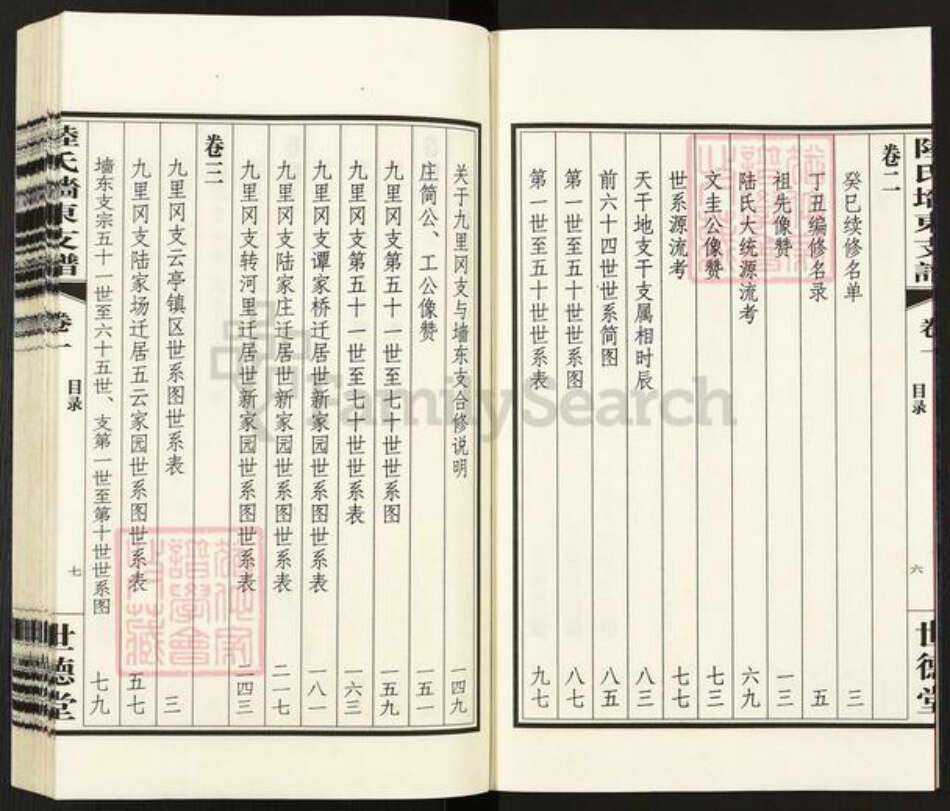 陆氏墙东支谱 卷一 目录 六 世德堂
卷二
癸巳续修名单 三
丁丑编修名录 五
祖先像赞 一三
陆氏大统源流考 六九
文圭公像赞 七三
世系源流考 七七
天干地支干支属相时辰 八三
前六十四世世系简图 八五
第一世至五十世世系图 八七
第一世至五十世世系表 九七
关于九里冈支与墙东支合修说明 一四九
庄简公、工公像赞 一五一
九里冈支第五十一世至七十世世系图 一五九
九里冈支第五十一世至七十世世系表 一六三
九里冈支谭家桥迁居世新家园世系图世系表 一八一
九里冈支陆家庄迁居世新家园世系图世系表 二一七
九里冈支转河里迁居世新家园世系图世系表 二四三
卷三
九里冈支云亭镇区世系图世系表 三
九里冈支陆家场迁居五云家园世系图世系表 五七
墙东支宗五十一世至六十五世、支第一世至第十世世系图 七九
陆氏墙东支谱 卷一 目录 七 世德堂
FamilySearch